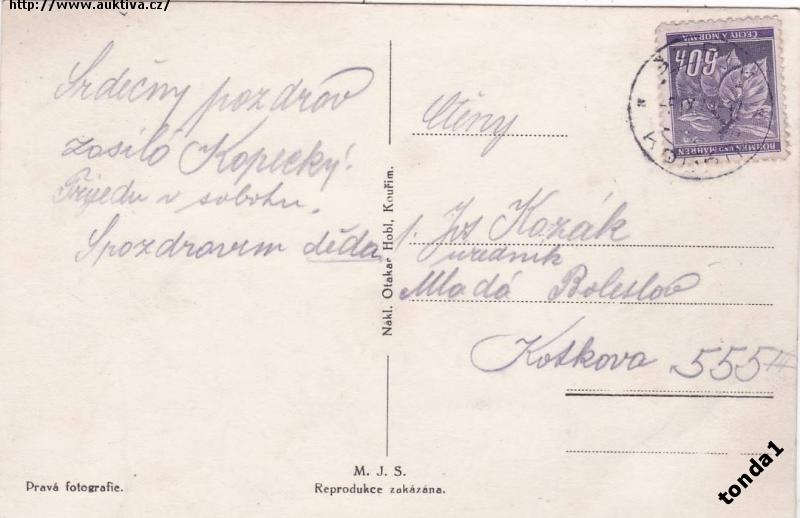 http://www.auktiva.cz/
Srdečny pozdrav
zasílá Kopecký.
Přijedu v sobotu.
S pozdravem děda
Nákl. Otakar Hobl, Kouřim.
Ctěny
p. Jos Kozák
uředník
Mladá Boleslav
Kotkova 555/II
ČECHY A MORAVA
60h
BÖHMEN UND MÄHREN
Pravá fotografie.
M. J. S.
Reprodukce zakázána.
tonda1